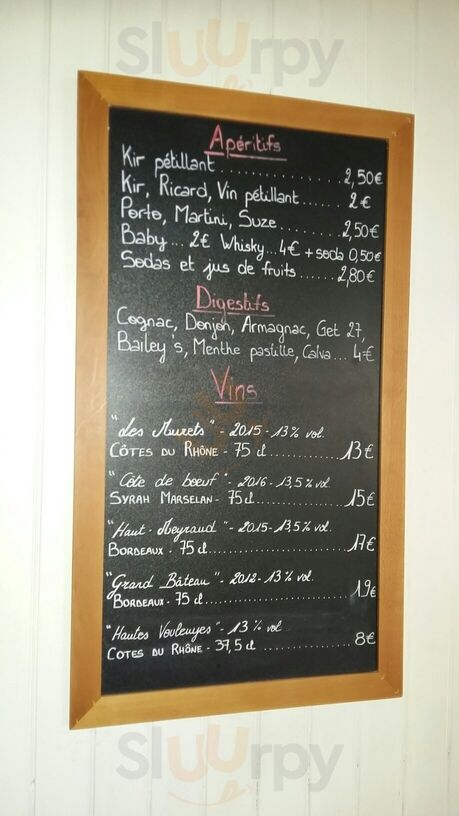 Sluurpy
Apéritifs
Kir pétillant.....................2,50€
Kir, Ricard, Vin pétillant....... 2€
Porto, Martini, Suze.........2,50€
Baby... 2€ Whisky...4€ + soda 0,50€
Sodas et jus de fruits......2,80€
Digestifs
Cognac, Donjon, Armagnac, Get 27,
Bailey's, Menthe pastille, Calva... 4€
Vins
"Les Murets" - 2015 - 13% vol.
CÔTES DU RHÔNE - 75 cl............13€
"Côte de boeuf" - 2016 - 13,5% vol
SYRAH MARSELAN - 75cl..............15€
"Haut-Meyraud" - 2015 - 13,5% vol.
BORDEAUX - 75 cl......................17€
"Grand Bâteau" - 2012 - 13% vol.
BORDEAUX - 75 cl......................19€
"Hautes" - 13% vol
COTES DU RHÔNE - 37,5 cl..............8€
Sluurpy